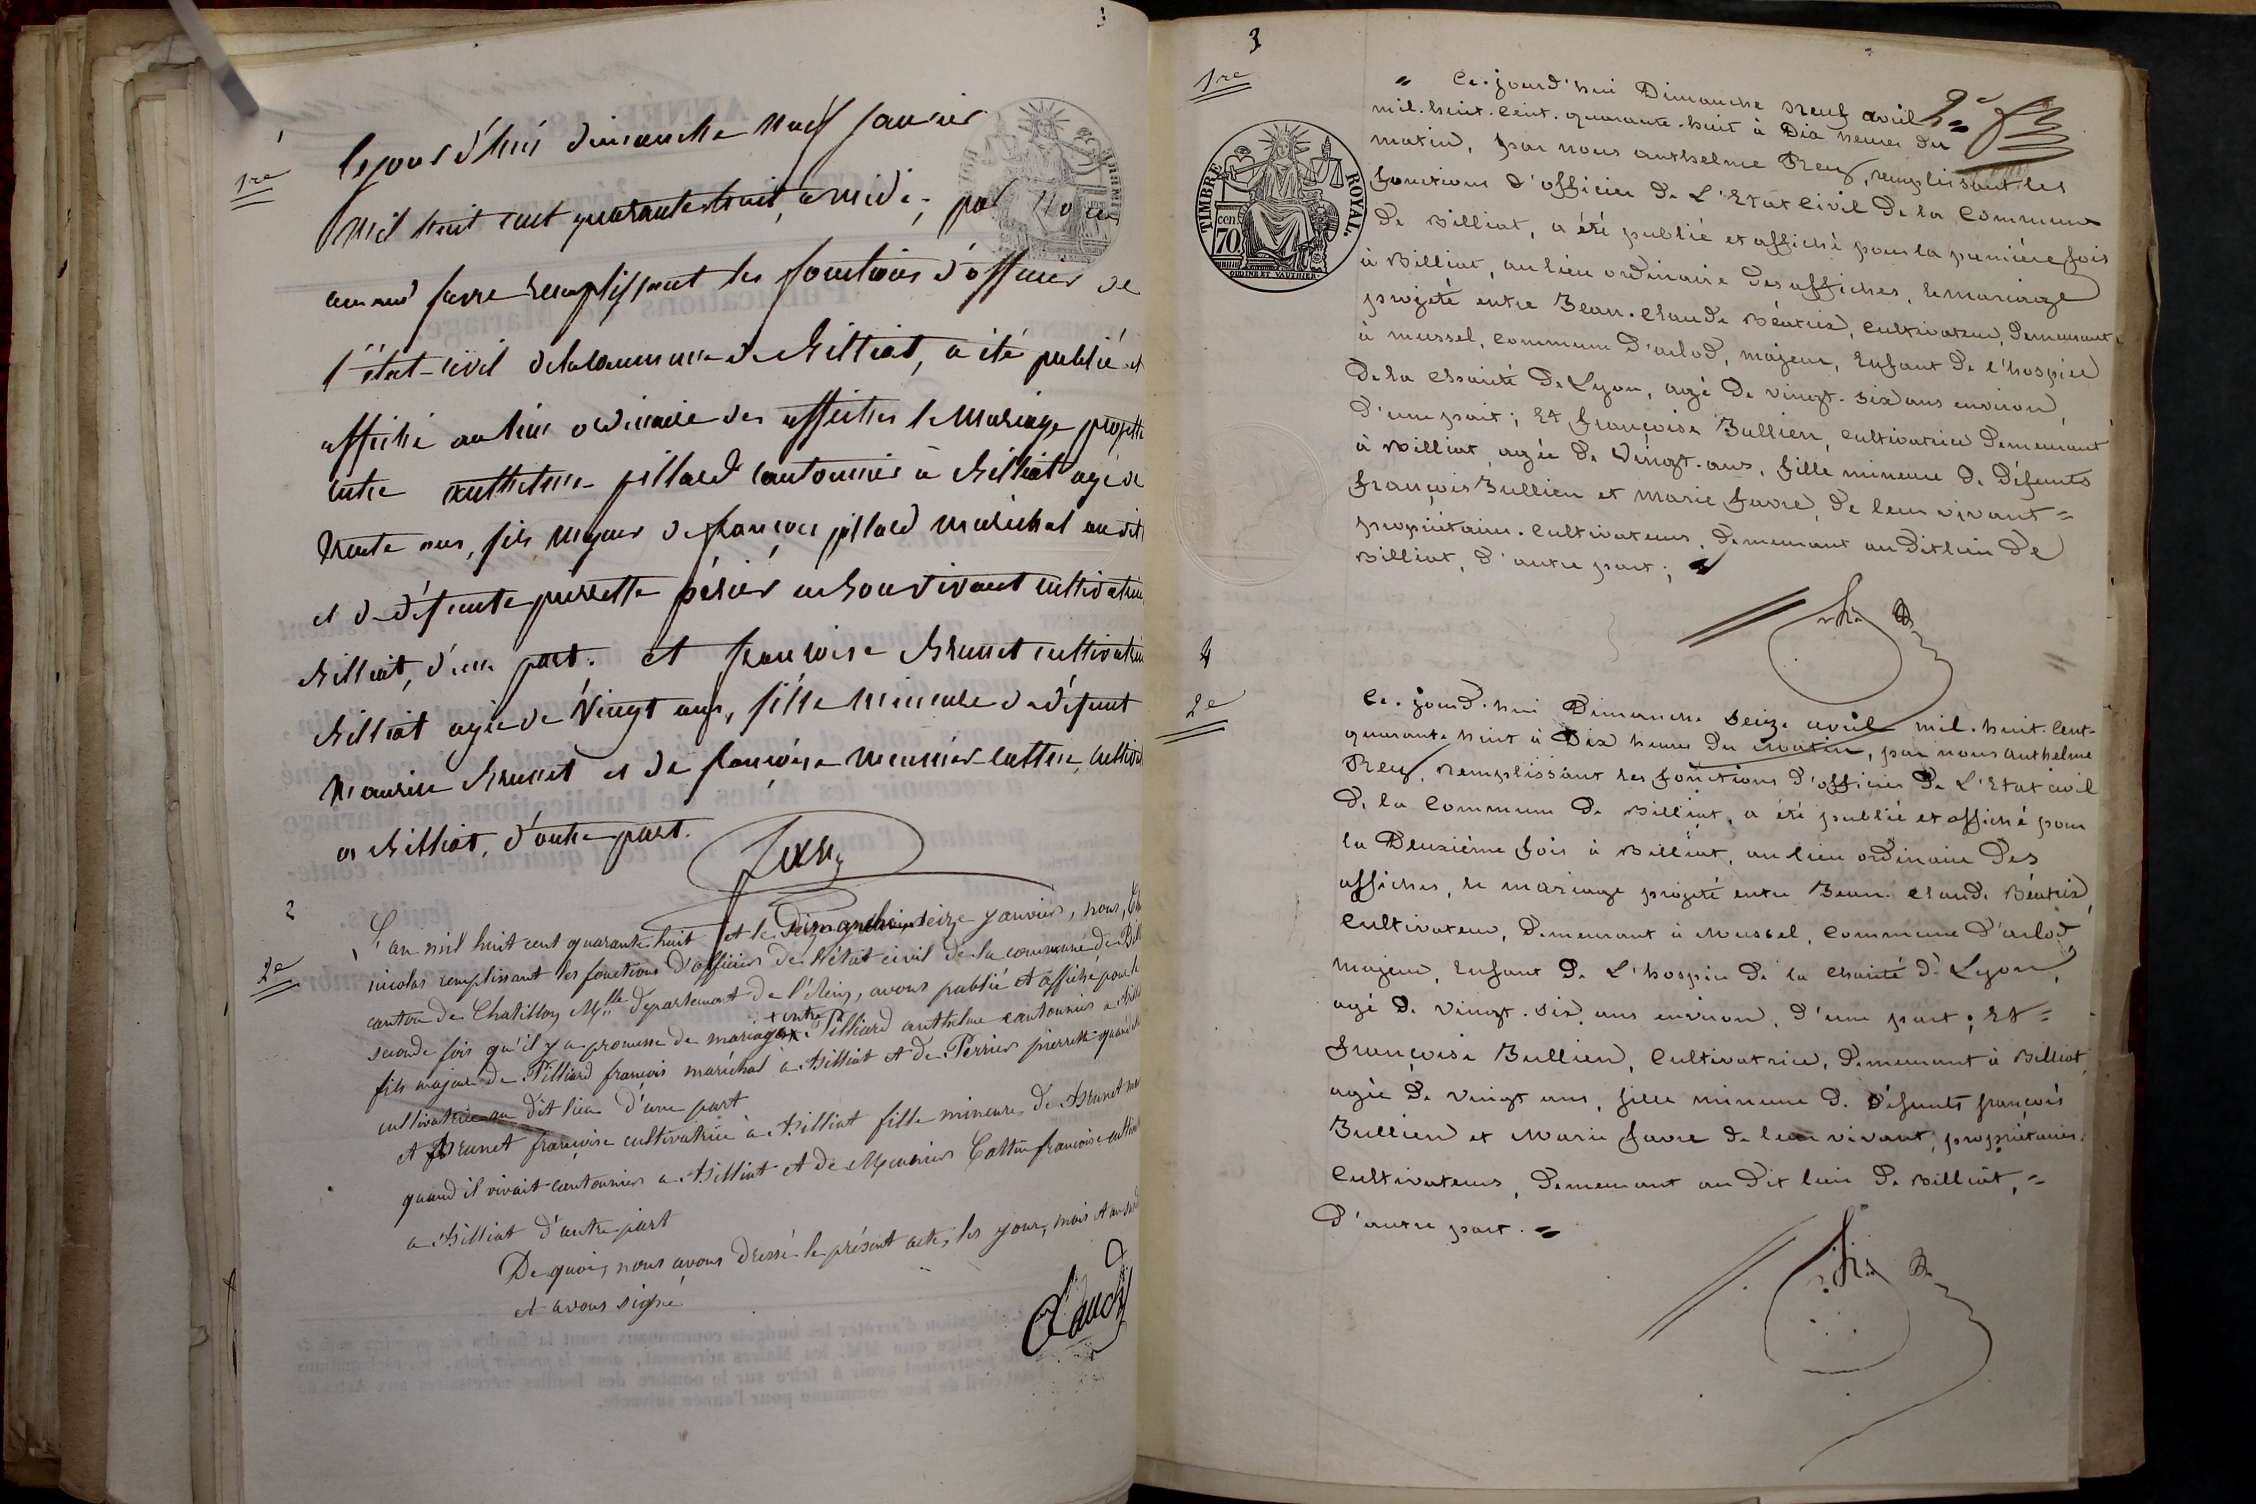 1
1re
Ce jour d'hui dimanche neuf janvier
mil huit cent quarante huit, à midi; par Nous
favre remplissant les fonctions d'officier de
l'état-civil de la commune de Billiat, a été publié et
affiché au lieu ordinaire des affiches le mariage projetté
entre anthelme pillard cantonnier à Billiat agé de
trente ans, fils majeur de françois pillard maréchal au dit
et de défunte pierrette périer en son vivant cultivatrice
Billiat, d'une part. et françoise Brunet cultivatrice
Billiat agée de Vingt ans, fille mineure de défunt
Maurice Brunet et de françoise meunier cattin, cultiva
à Billiat, d'autre part.
favre
2
2e
L'an mil huit cent quarante huit et le Dimanche seize janvier, nous,
nicolas remplissant les fonctions d'officier de l'état civil de la commune de Bil
canton de Chatillon Mlle département de l'Ain, avons publié et affiché pour la
seconde fois qu'il y a promesse de mariage entre Pilliard anthelme cantonnier a Billiat
fils majeur de Pilliard françois maréchal a Billiat et de Perrier pierrette quand
cultivatrice au dit lieu d'une part
et Brunet françoise cultivatrice a Billiat fille mineure de Brunet
quand il vivait cantonnier a Billiat et de Meunier Cattin françoise
a Billiat d'autre part
De quoi, nous avons dressé le présent acte, les jour, mois et an
et avons signé
3
1re
TIMBRE ROYAL.
70 cen
OUDINE ET VAUTHIER
" Ce-jourd'hui Dimanche neuf avril
mil-huit-Cent-quarante-huit à Dix heures du
matin, par nous anthelme Rey, remplissant les
fonctions d'officier De L'Etat Civil De la Commune
De Billiat, a été publié et affiché pour la première fois
à Billiat, au lieu ordinaire Des affiches, le mariage
projeté entre Jean-Claude Béatrix, Cultivateur, Demeurant
à mussel, Commune D'arlod, majeur, Enfant De l'hospice
De la Charité De Lyon, agé De vingt-six ans environ,
D'une part; Et françoise Jullien, Cultivatrice Demeurant
à Billiat, agée De Vingt-ans, fille mineure De Défunts
françois Jullien et marie favre, De leur vivant =
propriétaires-Cultivateurs, Demeurant au Dit lieu De
Billiat, D'autre part;
4
2e
Ce-jourd-hui Dimanche seize avril mil-huit-Cent-
quarante huit à Dix heures Du matin, par nous anthelme
Rey, Remplissant les fonctions D'officier De L'Etat civil
De la Commune De Billiat, a été publié et affiché pour
la Deuxième fois à Billiat, au lieu ordinaire Des
affiches, le mariage projeté entre Jean-Claude Béatrix,
Cultivateur, Demeurant à Mussel, Commune D'arlod,
Majeur, Enfant De L'hospice De la Charité De Lyon,
agé De vingt-six ans environ, D'une part; Et =
françoise Jullien, Cultivatrice, Demeurant à Billiat,
agée De vingt ans, fille mineure De Défunts françois
Jullien et Marie favre De leur vivant, propriétaires-
Cultivateurs, Demeurant au Dit lieu De Billiat, =
D'autre part. =